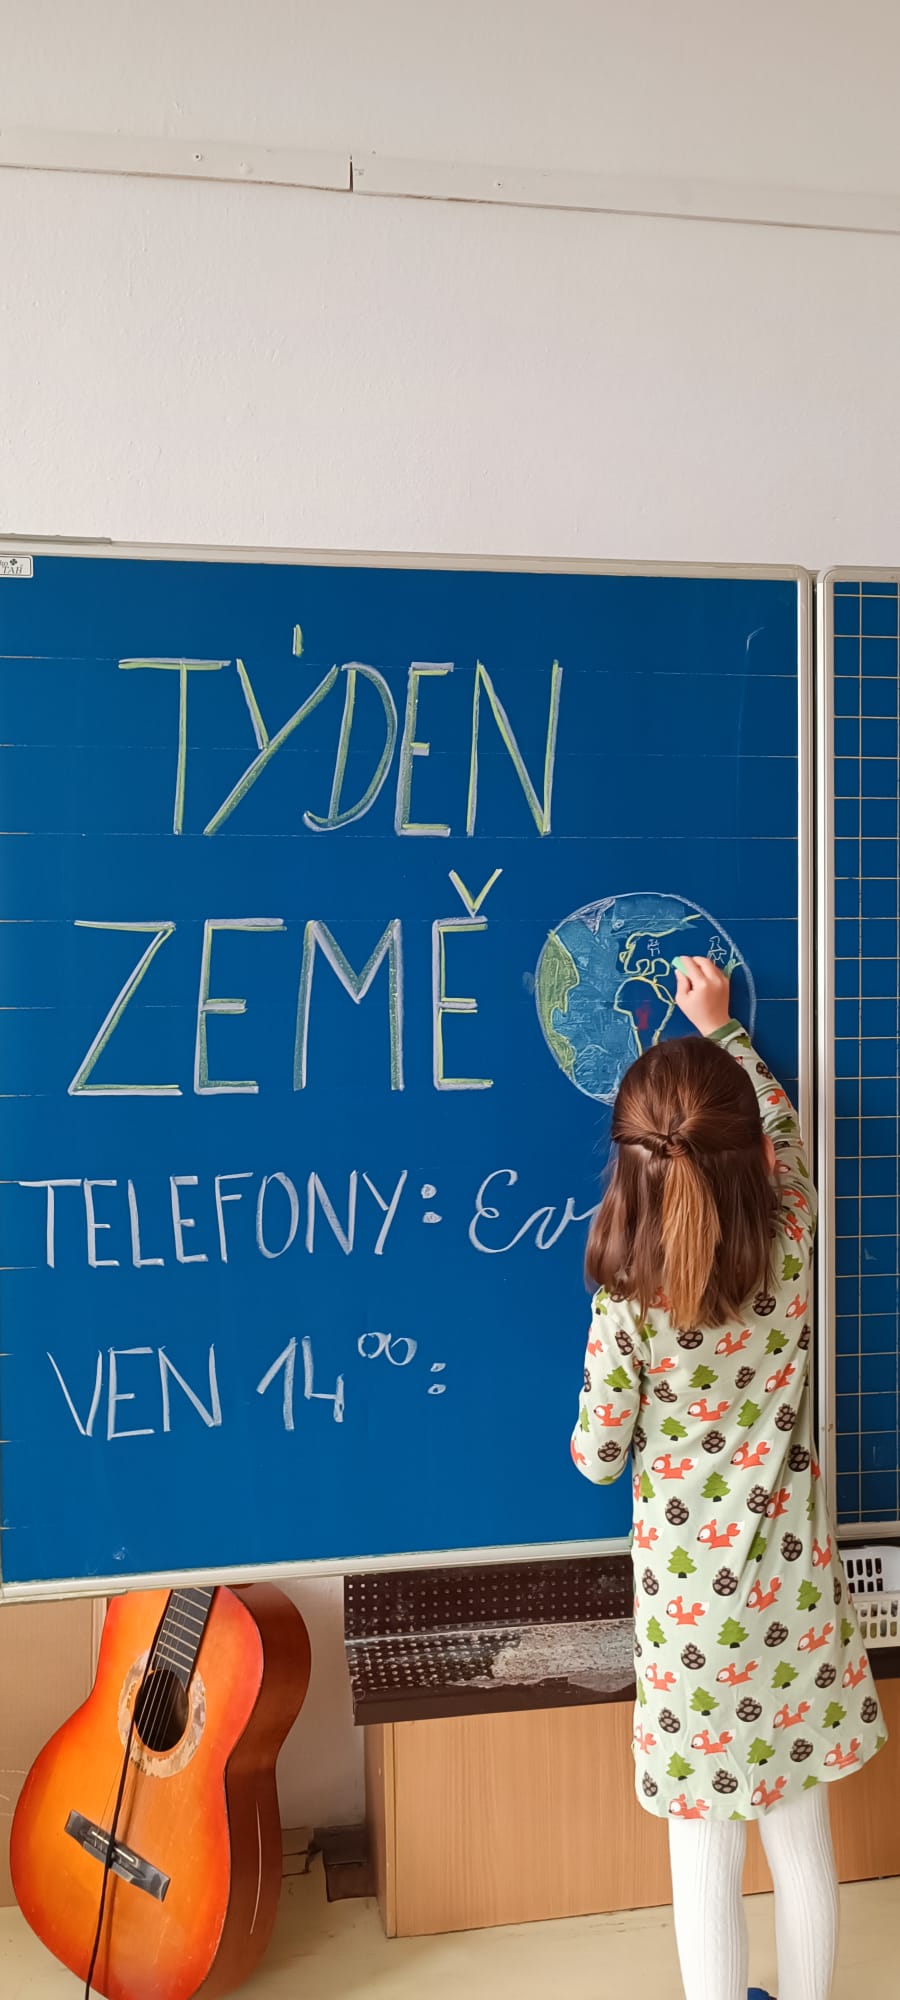 TÝDEN
ZEMĚ
TELEFONY: Ev
VEN 14⁰⁰: